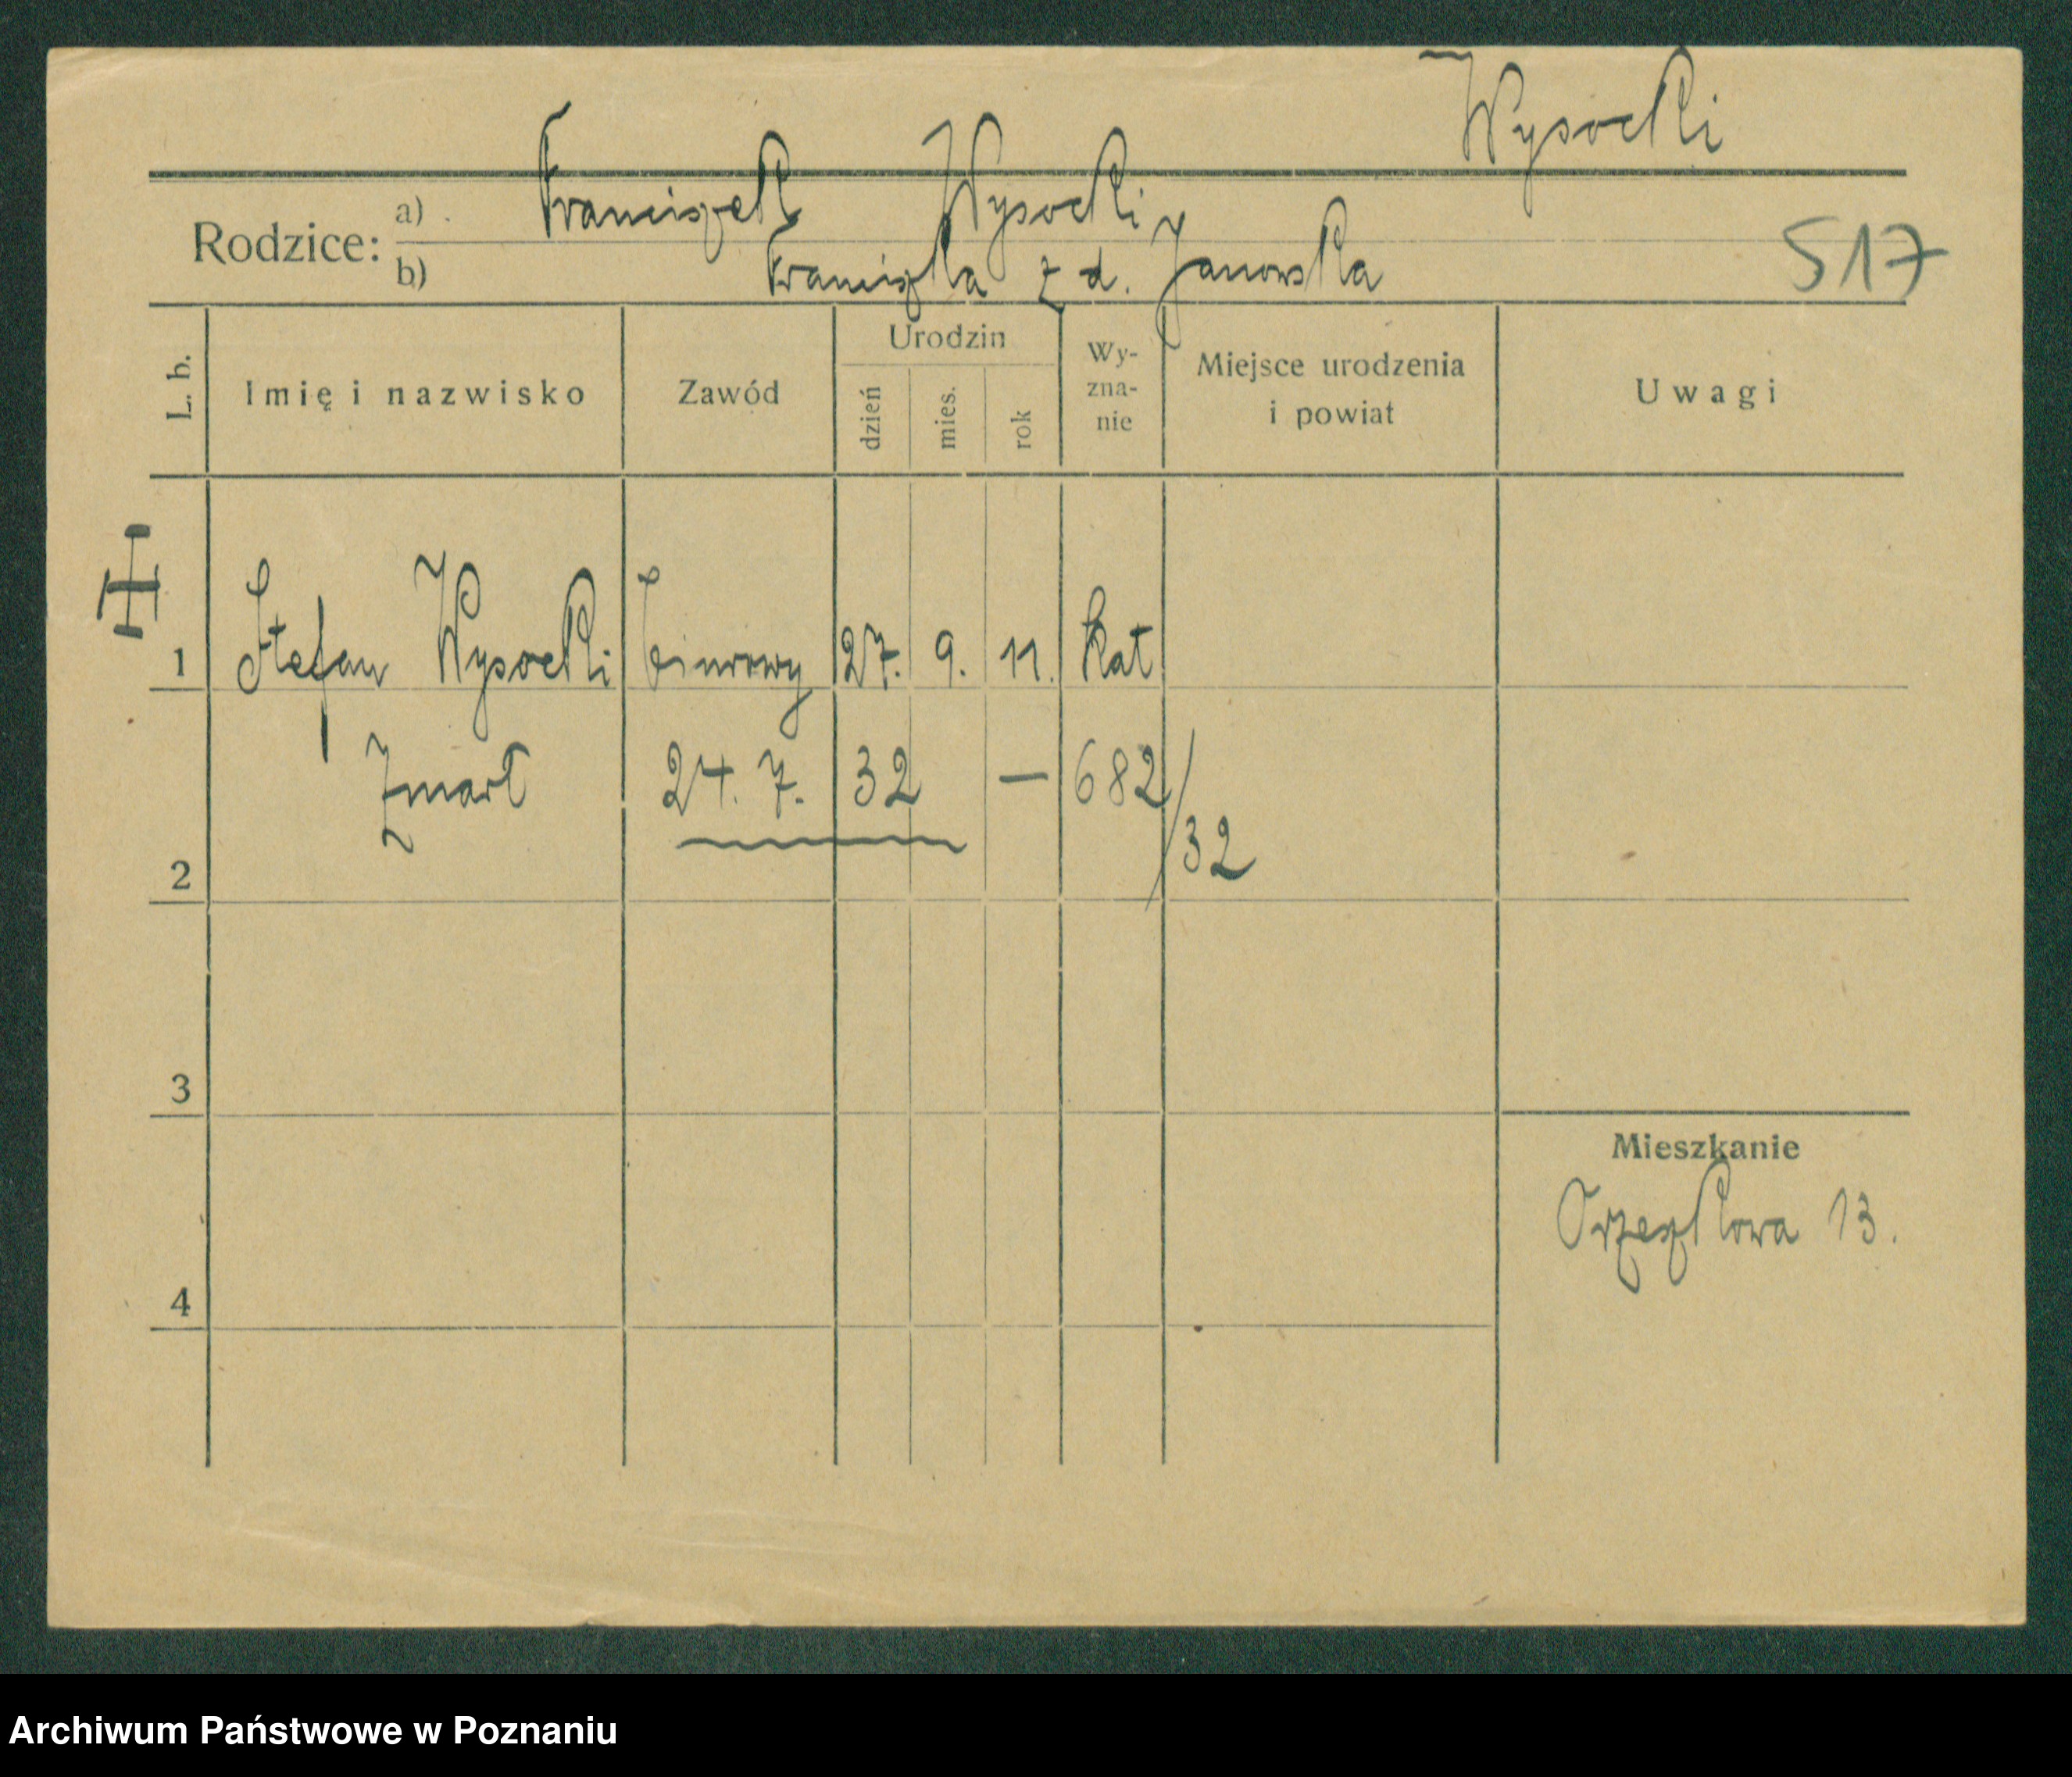 Wysocki
Rodzice: a) Franciszek Wysocki
b) Franciszka z d. Janowska
517
L. b. Imię i nazwisko Zawód Urodzin dzień mies. rok Wy-zna-nie Miejsce urodzenia i powiat Uwagi
1 Stefan Wysocki biurowy 27. 9. 11. kat
Zmarł 24. 7. 32 — 682/32
2
3
Mieszkanie
Orzeszkowa 13.
4
Archiwum Państwowe w Poznaniu